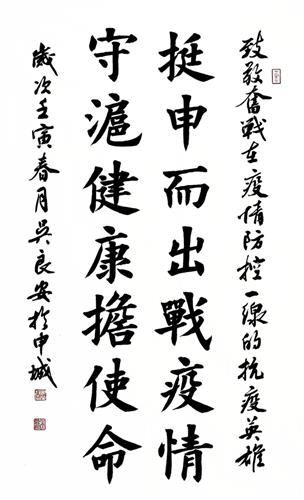 致敬奮戰在疫情防控一線的抗疫英雄
挺申而出戰疫情
守滬健康擔使命
歲次壬寅春月吳良安於申城